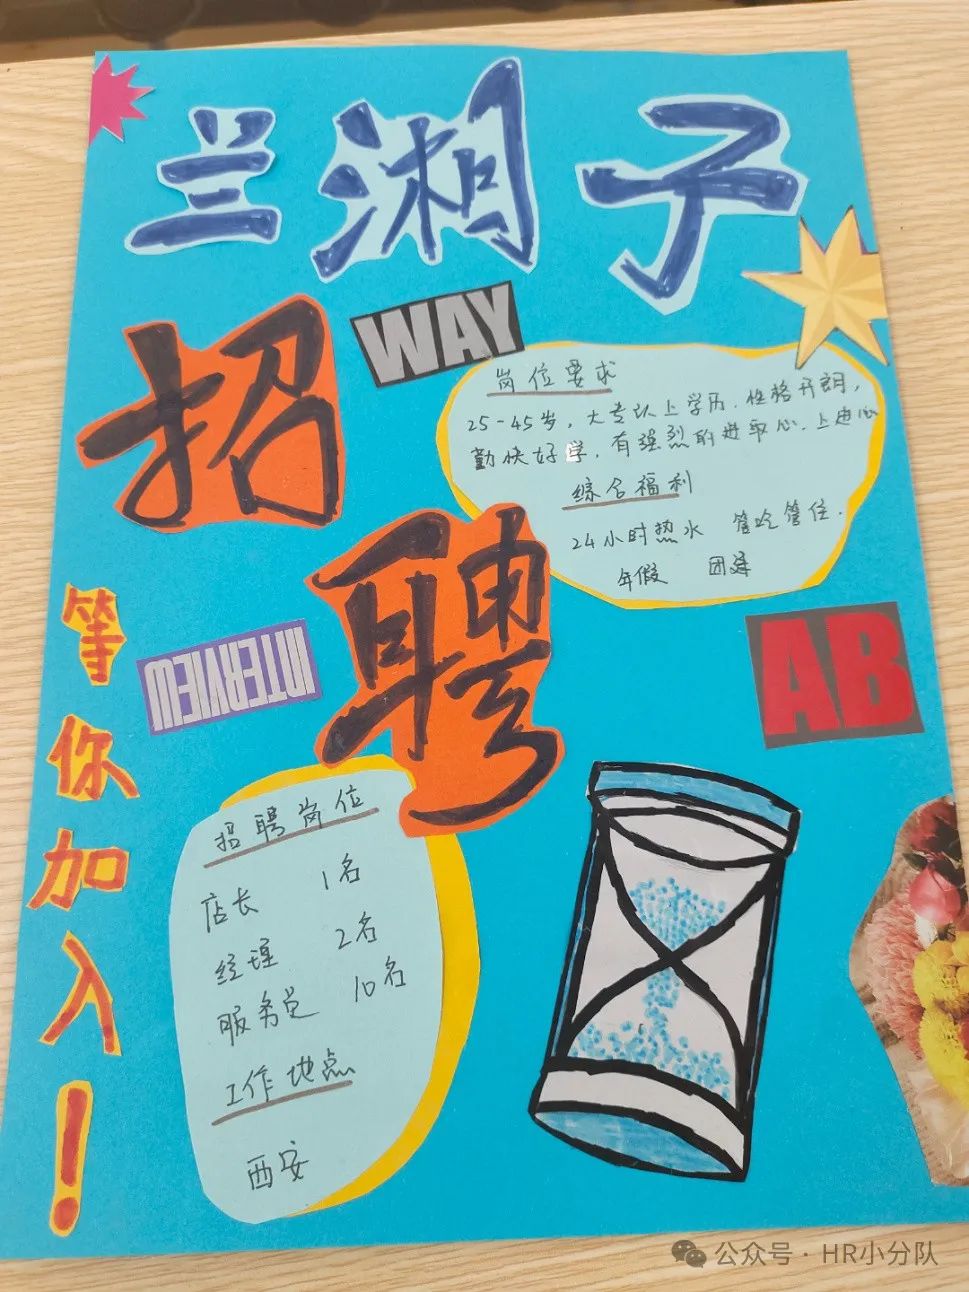 兰湘子
招聘
WAY
岗位要求
25-45岁，大专以上学历．性格开朗，
勤快好学，有强烈的进取心．上进心
综合福利
24小时热水 管吃管住．
年假 团建
INTERVIEW
AB
等你加入！
招聘岗位
店长 1名
经理 2名
服务员 10名
工作地点
西安
公众号 · HR小分队